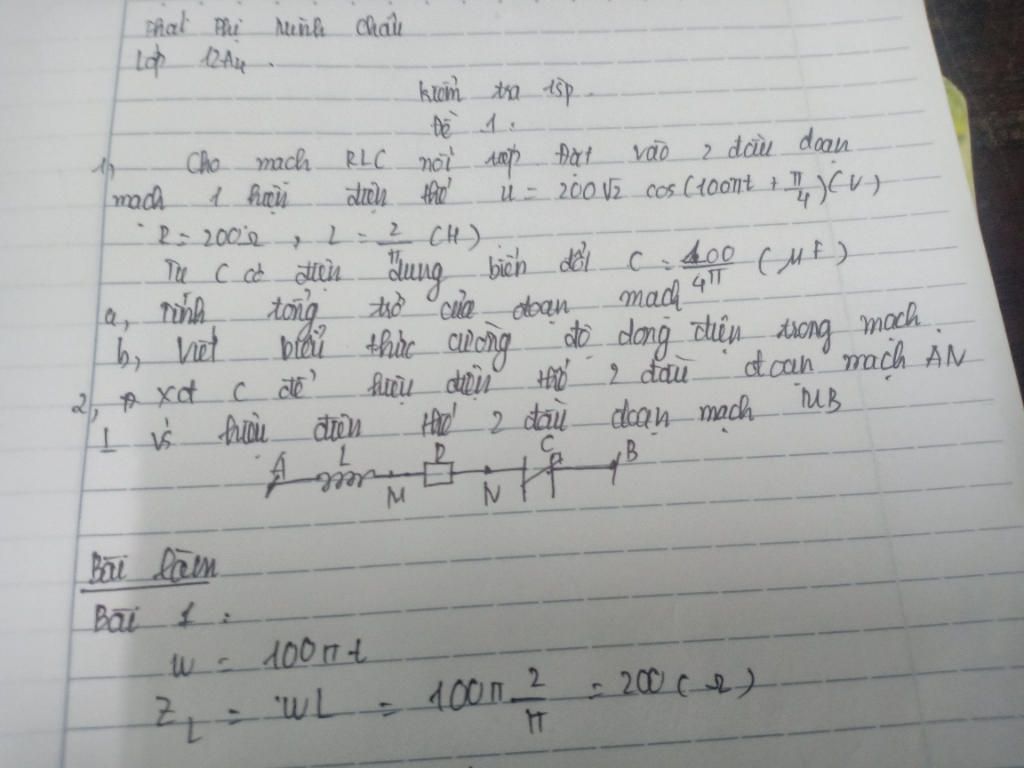 Thị Minh Châu
Lớp 12A4.
Kiểm tra 15p.
Đề 1.
1, Cho mạch RLC nối tiếp Đặt vào 2 đầu đoạn
mạch 1 hiệu điện thế u = 200√2 cos(100πt + π/4)(V)
R = 200Ω, L = 2/π (H)
Tụ C có điện dung biến đổi C = 100/4π (μF)
a, Tính tổng trở của đoạn mạch
b, Viết biểu thức cường độ dòng điện trong mạch.
2, xđ C để hiệu điện thế 2 đầu đoạn mạch AN
⊥ vs hiệu điện thế 2 đầu đoạn mạch MB
A L M R N C B
Bài làm
Bài 1:
w = 100πt
Z_L = wL = 100π 2/π = 200(Ω)